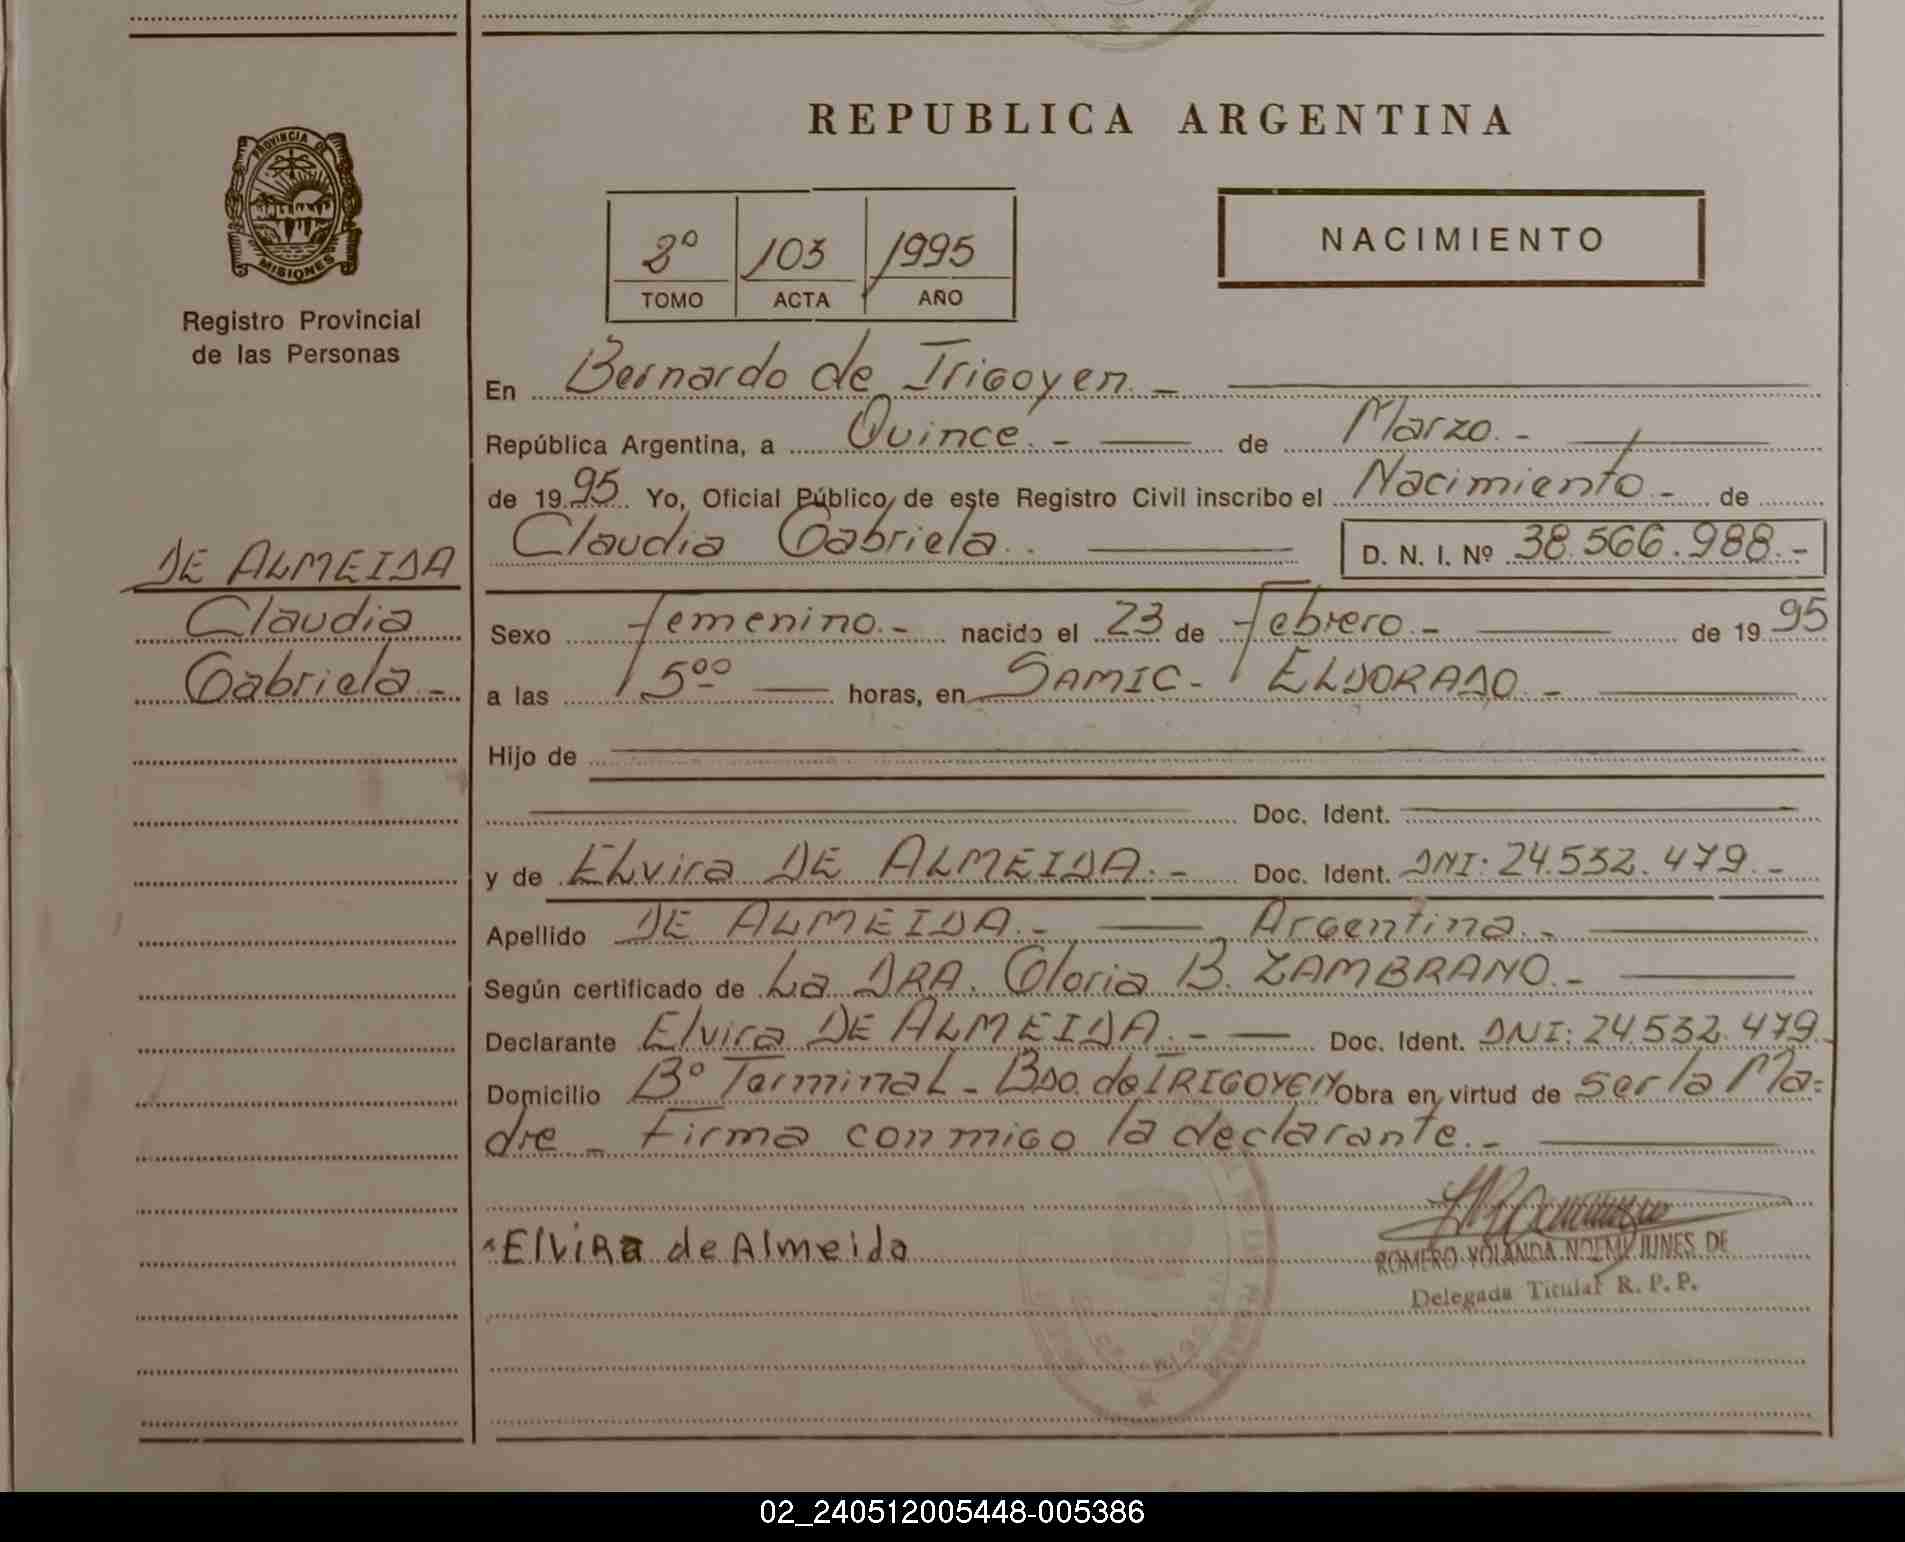 REPUBLICA ARGENTINA
PROVINCIA DE
MISIONES
Registro Provincial
de las Personas
2º 103 1995
TOMO ACTA AÑO
NACIMIENTO
En Bernardo de Irigoyen. -
República Argentina, a Quince. - de Marzo. -
de 1995 Yo, Oficial Público, de este Registro Civil inscribo el Nacimiento - de
Claudia Gabriela. D. N. I. Nº 38.566.988.-
DE ALMEIDA
Claudia
Gabriela. -
Sexo femenino. - nacido el 23 de febrero. - de 1995
a las 15⁰⁰ horas, en SAMIC - ELDORADO. -
Hijo de
Doc. Ident.
y de ELvira DE ALMEIDA. - Doc. Ident. DNI: 24.532.479. -
Apellido DE ALMEIDA. - Argentina. -
Según certificado de La DRA. Gloria B. ZAMBRANO. -
Declarante Elvira DE ALMEIDA. - Doc. Ident. DNI: 24.532.479. -
Domicilio Bº TerminaL - Bdo. de IRIGOYEN Obra en virtud de ser la Ma=
dre - Firma conmigo la declarante. -
ElviRa de Almeida
ROMERO YOLANDA NOEMI JUNES DE
Delegada Titular R. P. P.
02_240512005448-005386